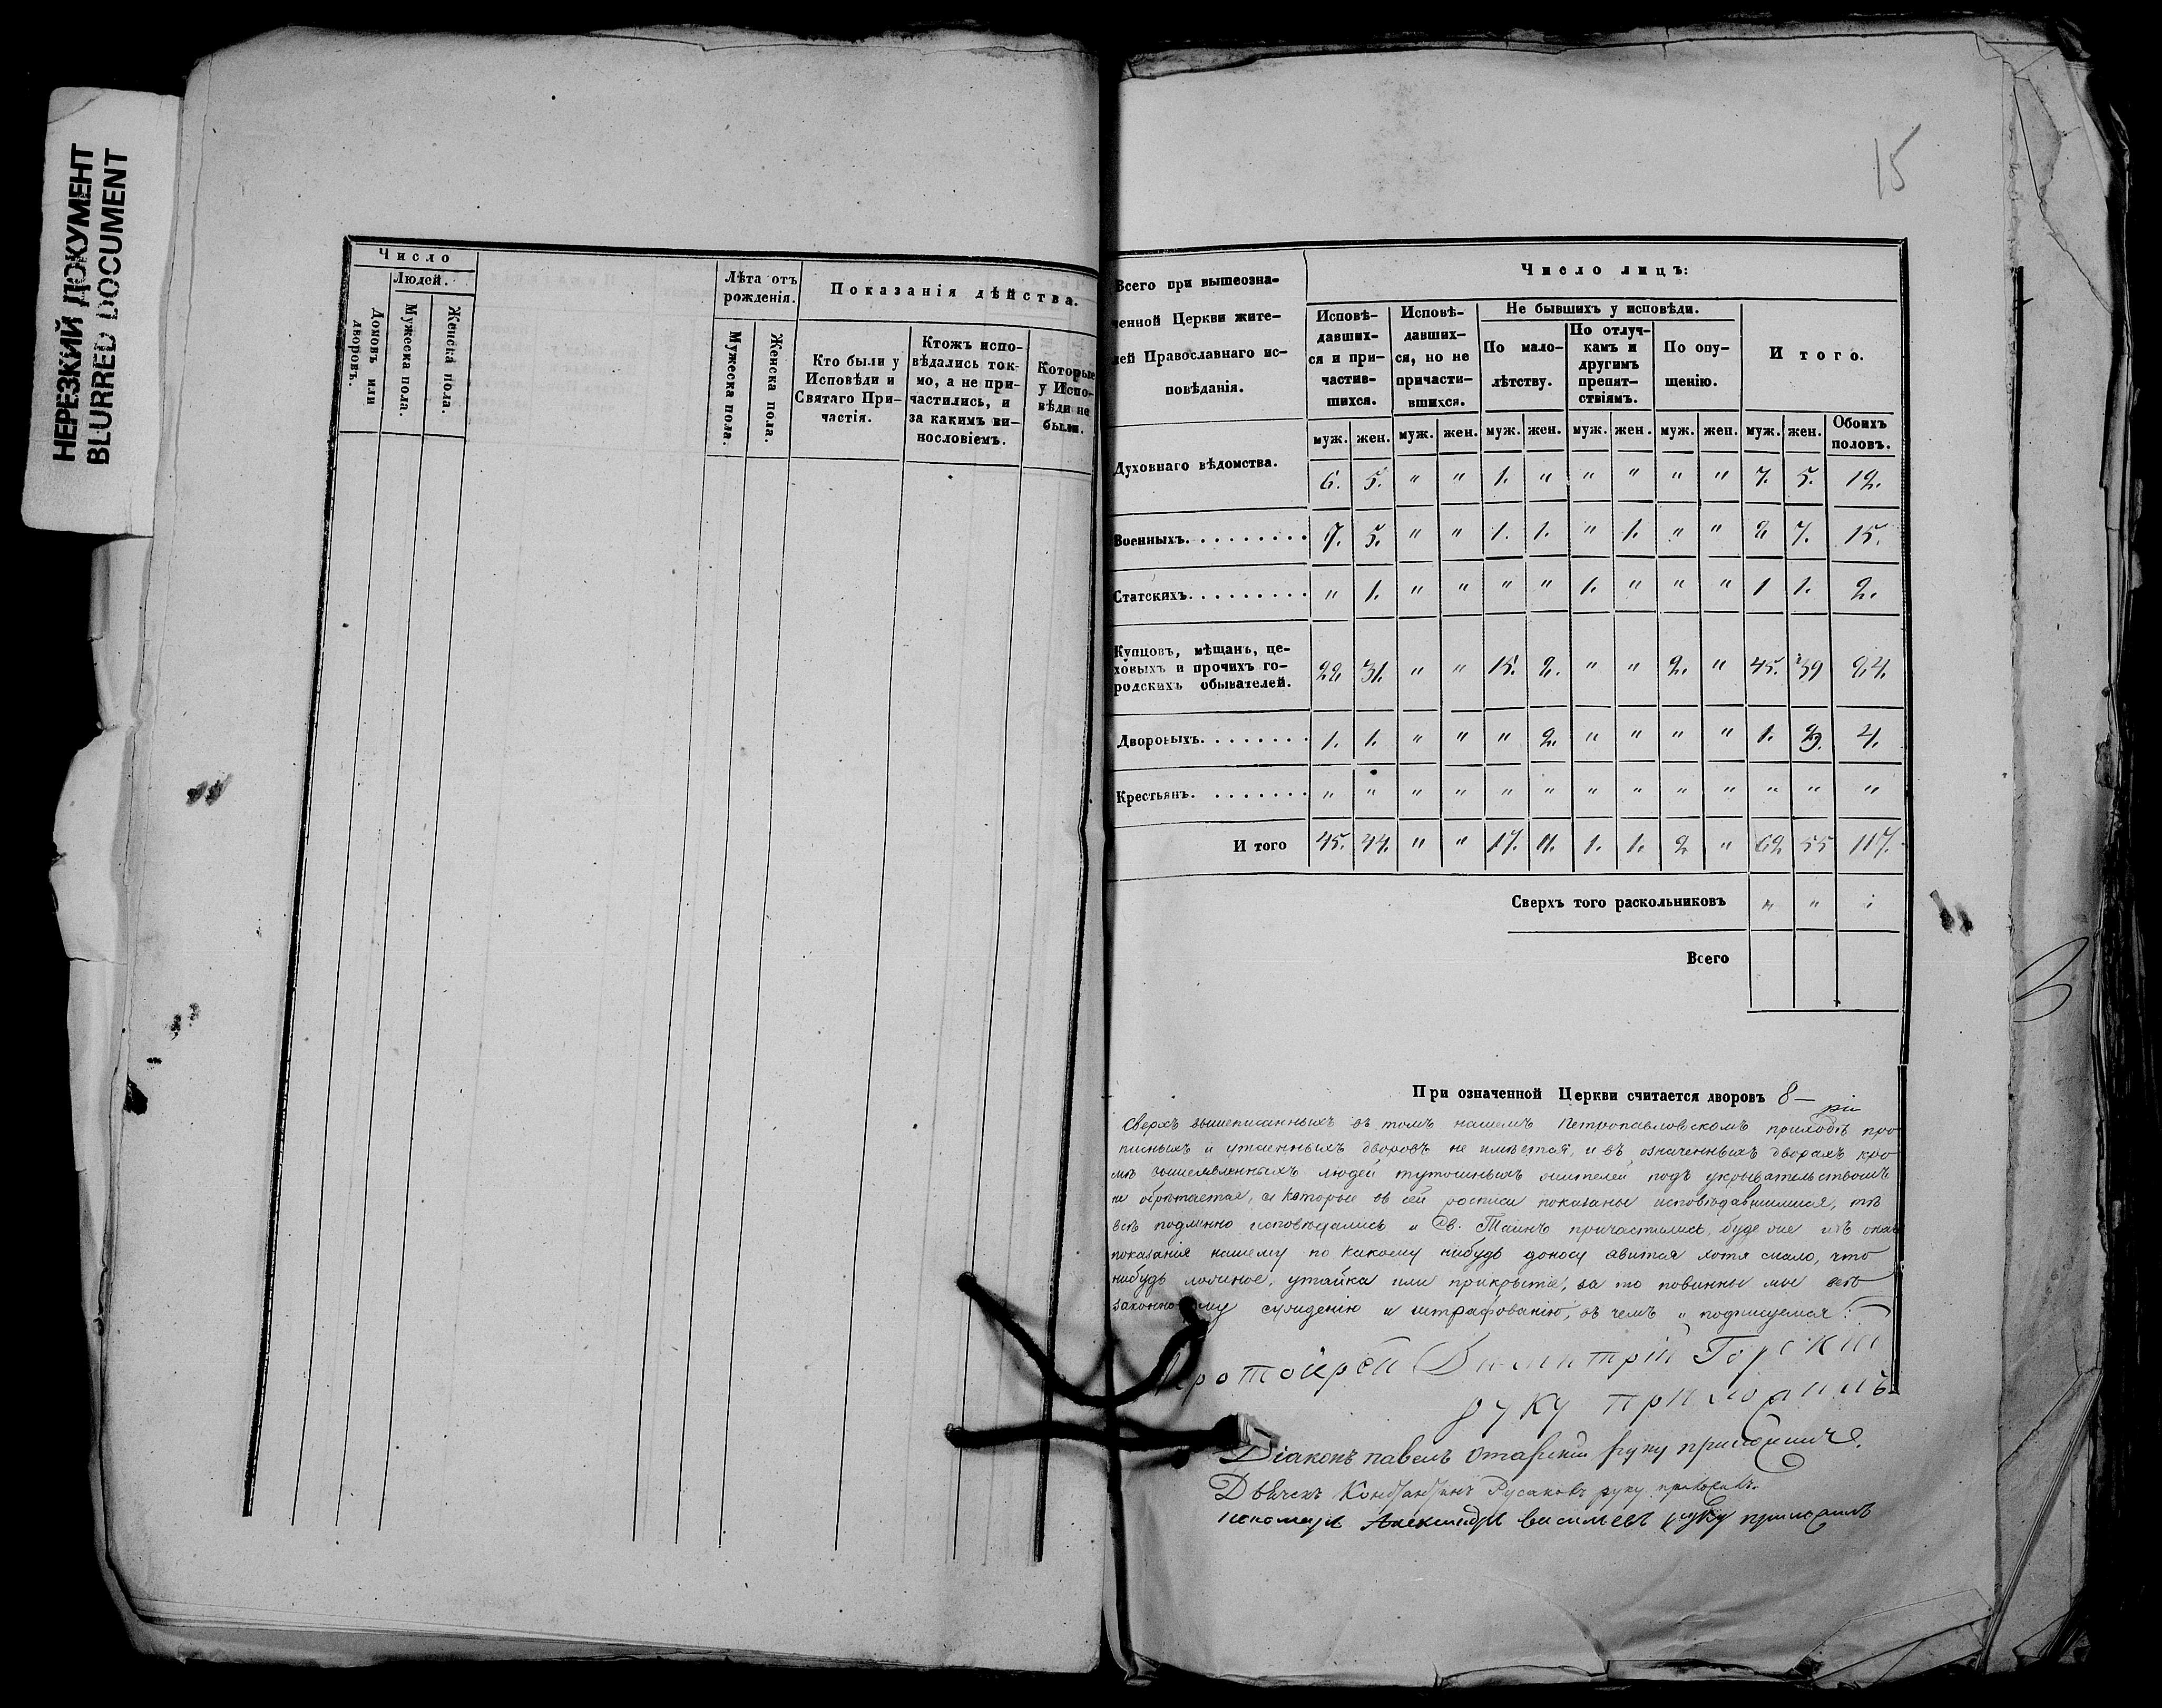 НЕРЕЗКИЙ ДОКУМЕНТ
BLURRED DOCUMENT
Число
Людей.
Домовъ или дворовъ.
Мужеска пола.
Женска пола.
Лѣта отъ рожденія.
Мужеска пола.
Женска пола.
Показанія дѣйства.
Кто были у Исповѣди и Святаго Причастія.
Ктожъ исповѣдались токмо, а не причастились, и за какимъ винословіемъ.
Которые у Исповѣди не были.
15
Всего при вышеозначенной Церкви жителей Православнаго исповѣданія.
Число лицъ:
Исповѣдавшихся и причастившихся.
Исповѣдавшихся, но не причастившихся.
Не бывшихъ у исповѣди.
По малолѣтству.
По отлучкамъ и другимъ препятствіямъ.
По опущенію.
Итого.
муж. жен. муж. жен. муж. жен. муж. жен. муж. жен. муж. жен. Обоихъ половъ.
Духовнаго вѣдомства. 6. 5. " " 1. " " " " " 7. 5. 12.
Военныхъ. 7. 5. " " 1. 1. " 1. " " 7. 15.
Статскихъ. " 1. " " " " 1. " " " 1 1. 2.
Купцовъ, мѣщанъ, цеховыхъ и прочихъ городскихъ обывателей. 31. " " 15. 2. " " 2. " 45. 39
Дворовыхъ. 1. 1. " " " 2. " " " " 1. 4.
Крестьянъ. " " " " " " " " " " " " "
И того 45. 44. " " 17. 1. 1. 2 " 62 55 117.
Сверхъ того раскольниковъ " "
Всего
При означенной Церкви считается дворовъ 8
Сверхъ вышеписанныхъ въ томъ нашемъ Петропавловскомъ приходѣ про
писныхъ и утаенныхъ дворовъ не имѣется, и въ означенныхъ дворахъ кро
мѣ людей тутошныхъ жителей подъ укрывательствомъ
не обрѣтается, а которые въ сей росписи показаны исповѣдавшимися, тѣ
всѣ подлинно исповѣдались и Св. Таинъ причастились, буде же
показанія нашему по какому нибудь доносу явится хотя мало, что
нибудь ложное, утайка или прикрытіе, за то повинны мы всѣ
законному сужденію и штрафованію, въ чемъ и подписуемся:
Протоіерей Димитрій Горскій
руку приложилъ
Діаконъ Павелъ руку приложилъ.
Дьячекъ Константинъ Русаковъ руку приложилъ.
Пономарь Александръ Васильевъ руку приложилъ